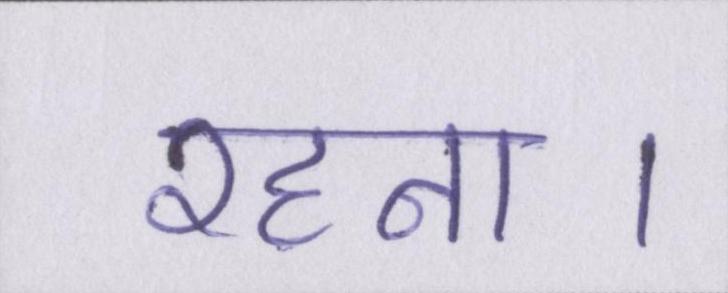 रहना।